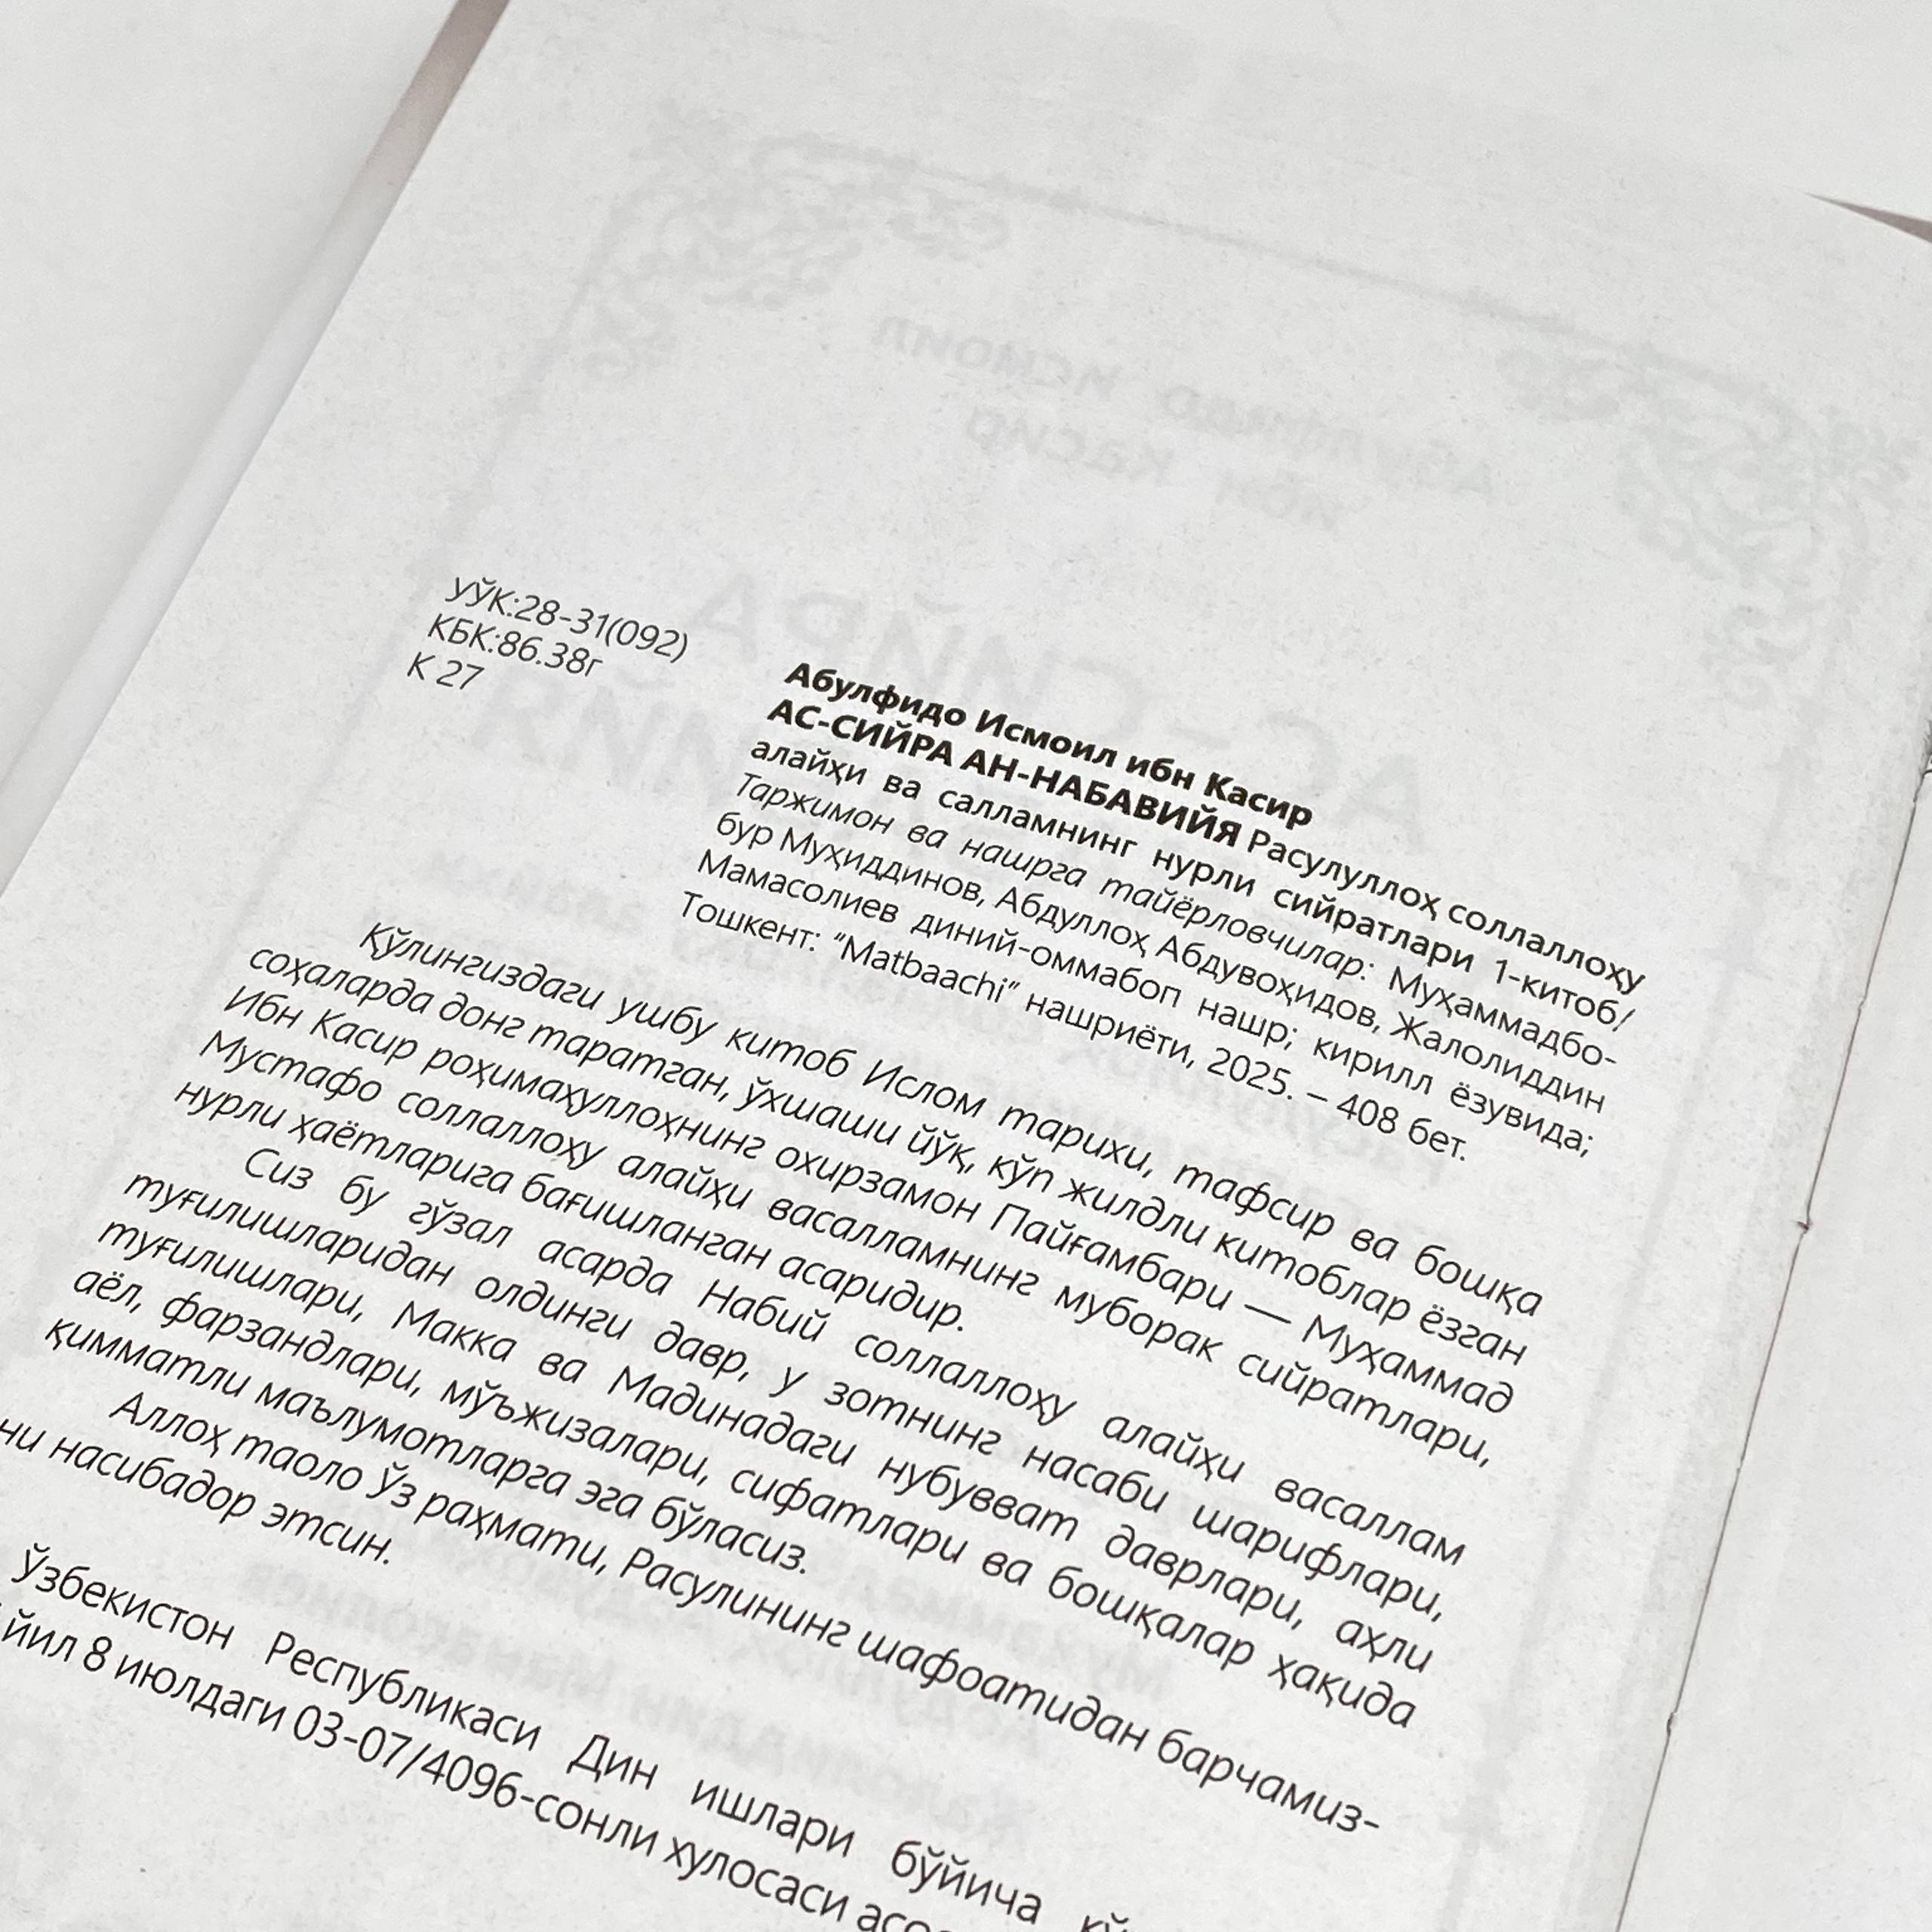 УЎК:28-31(092)
КБК:86.38г
К 27
Абулфидо Исмоил ибн Касир
АС-СИЙРА АН-НАБАВИЙЯ Расулуллоҳ соллаллоҳу
алайҳи ва салламнинг нурли сийратлари 1-китоб/
Таржимон ва нашрга тайёрловчилар: Муҳаммадбо-
бур Муҳиддинов, Абдуллоҳ Абдувоҳидов, Жалолиддин
Мамасолиев диний-оммабоп нашр; кирилл ёзувида;
Тошкент: "Matbaachi" нашриёти, 2025. – 408 бет.
Қўлингиздаги ушбу китоб Ислом тарихи, тафсир ва бошқа
соҳаларда донг таратган, ўхшаши йўқ, кўп жилдли китоблар ёзган
Ибн Касир роҳимаҳуллоҳнинг охирзамон Пайғамбари — Муҳаммад
Мустафо соллаллоҳу алайҳи васалламнинг муборак сийратлари,
нурли ҳаётларига бағишланган асаридир.
Сиз бу гўзал асарда Набий соллаллоҳу алайҳи васаллам
туғилишларидан олдинги давр, у зотнинг насаби шарифлари,
туғилишлари, Макка ва Мадинадаги нубувват даврлари, аҳли
аёл, фарзандлари, мўъжизалари, сифатлари ва бошқалар ҳақида
қимматли маълумотларга эга бўласиз.
Аллоҳ таоло Ўз раҳмати, Расулининг шафоатидан барчамиз-
ни насибадор этсин.
Ўзбекистон Республикаси Дин ишлари бўйича
йил 8 июлдаги 03-07/4096-сонли хулосаси